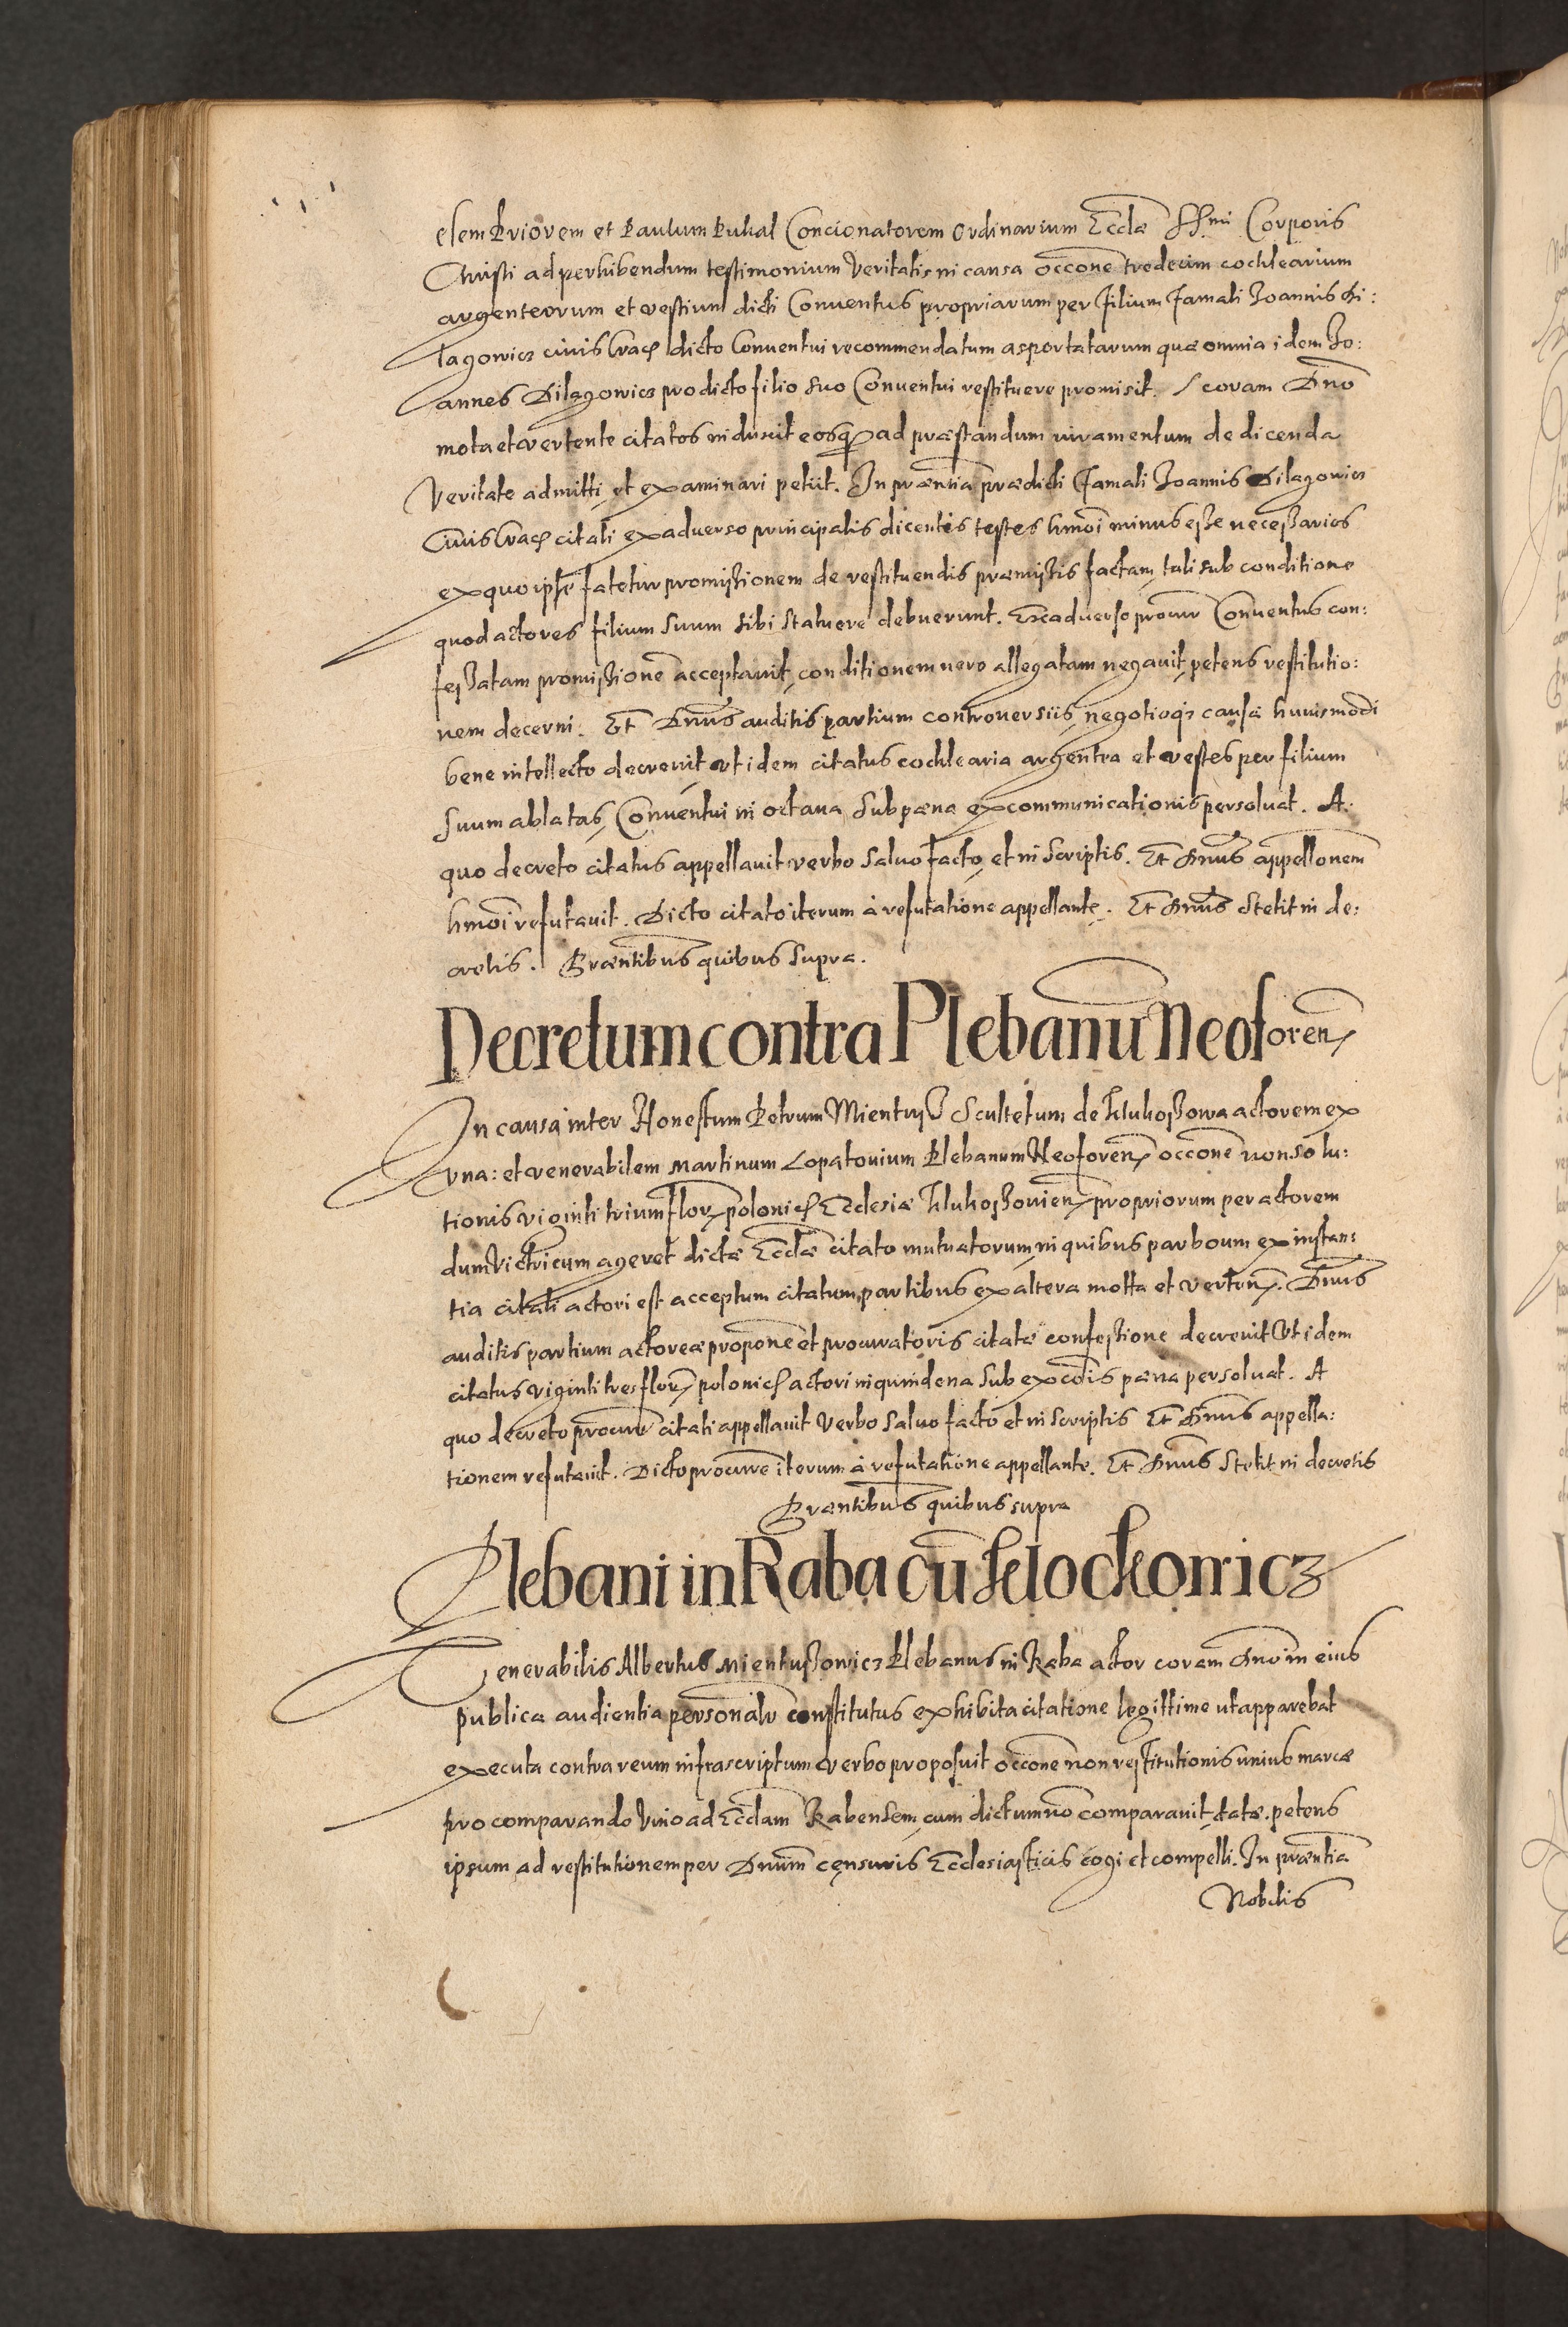 esem Priorem et Paulum Pukal Concionatorem Ordinarium Eccłæ SSmi Corporis
Christi ad perhibendum testimonium Veritatis in causa occone tredecim cochlearium
argenteorum et vestium dicti Conventus propriarum per filium famati Joannis Di:
lagowicz civis Crac dicto Conventui recommendatum asportatarum quæ omnia idem Jo:
annes Dilagowicz pro dicto filio suo Conventui restituere promisit. coram Dno
mota et vertente citatos induxit eosq ad præstandum iuramentum de dicenda
Veritate admitti, et examinari petiit. In præntia prædicti famati Joannis Dilagowicz
Civis Crac citati ex adverso principalis dicentis testes hmoi minus esse necessarios
ex quo ipse fatetur promissionem de restituendis præmissis factam, tali sub conditione
quod actores filium suum sibi statuere debuerunt. Ex adverso procur Conventus con:
fessatam promissione acceptavit, conditionem vero allegatam negavit, petens restitutio:
nem decerni. Et Dnus auditis partium controversiis, negotioq causæ huiusmodi
bene intellecto decrevit ut idem citatus cochlearia argentea et vestes per filium
suum ablatas, Conventui in octava sub pæna excommunicationis persolvat. A
quo decreto citatus appellavit verbo salvo facto, et in scriptis. Et Dnus appellonem
hmoi refutavit. Dicto citato iterum à refutatione appellante. Et Dnus stetit in de:
cretis. Præntibus quibus supra.
Decretum contra Plebanu Neoforen
In causa inter Honestum Petrum Mientus Scultetum de Klukoszowa actorem ex
una: et venerabilem Martinum Lopatovium Plebanum Neoforen occone non solu:
tionis viginti trium flor polonic Ecclesiæ Klukoszovien propriorum per actorem
dum victricum ageret dictæ Eccłæ citato mutuatorum, in quibus par boum ex instan:
tia citati actori est acceptum citatum, partibus ex altera motta et verten. Dnus
auditis partium actoreæ propone et procuratoris citatæ confessione decrevit Ut idem
citatus viginti tres flor polonic actori in quindena sub excois pæna persolvat. A
quo decreto procur citati appellavit Verbo salvo facto et in scriptis Et Dnus appella:
tionem refutavit. Dicto procure iterum à refutatione appellante. Et Dnus stetit in decretis
Præntibus quibus supra
Plebani in Raba cu
Venerabilis Albertus Mientuszowicz Plebanus in Raba actor coram Dno in eius
publica audientia personalr constitutus exhibita citatione legittime ut apparebat
executa contra reum infrascriptum verbo proposuit occone non restitutionis unius marcæ
pro comparando vino ad Eccłam Rabensem, cum dictum no comparavit, datæ. petens
ipsum ad restitutionem per Dnum censuris Ecclesiasticis cogi et compelli. In præntia
Nobilis